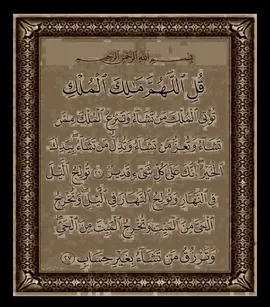 بِسْمِ اللَّهِ الرَّحْمَٰنِ الرَّحِيمِ
قُلِ اللَّهُمَّ مَالِكَ الْمُلْكِ
تُؤْتِي الْمُلْكَ مَن تَشَاءُ وَتَنزِعُ الْمُلْكَ مِمَّن
تَشَاءُ وَتُعِزُّ مَن تَشَاءُ وَتُذِلُّ مَن تَشَاءُ بِيَدِكَ
الْخَيْرُ إِنَّكَ عَلَىٰ كُلِّ شَيْءٍ قَدِيرٌ تُولِجُ اللَّيْلَ
فِي النَّهَارِ وَتُولِجُ النَّهَارَ فِي اللَّيْلِ وَتُخْرِجُ
الْحَيَّ مِنَ الْمَيِّتِ وَتُخْرِجُ الْمَيِّتَ مِنَ الْحَيِّ
وَتَرْزُقُ مَن تَشَاءُ بِغَيْرِ حِسَابٍ ٢٧